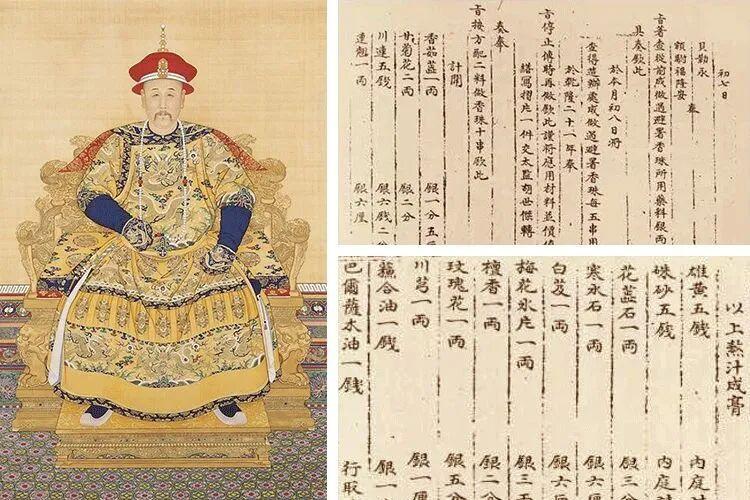 初七日
貝勒永
額駙福隆安 奏
旨著查從前成做過避暑香珠所用藥料銀兩
具奏欽此
於本月初八日將
查得造辦處成做過避暑香珠每五串用
於乾隆二十一年奉
旨停止傳時再做欽此謹將應用材料並價
繕寫摺片一件交太監胡世傑轉
奏奉
旨接方配二料做香珠十串欽此
計開
香茹藎一兩 銀一分五厘
甘菊花二兩 銀二分
川連五錢 銀六錢二分
連翹一兩 銀六厘
以上熬汁成膏
雄黃五錢 內庭
硃砂五錢 內庭
花蕊石一兩 銀三
寒水石一兩 銀六厘
白芨一兩 銀六厘
梅花氷片一兩 銀三
檀香一兩 銀二分
玫瑰花一兩 銀五分
川芎一兩 銀一厘
蘇合油一錢 銀一
巴爾薩木油一錢 行取